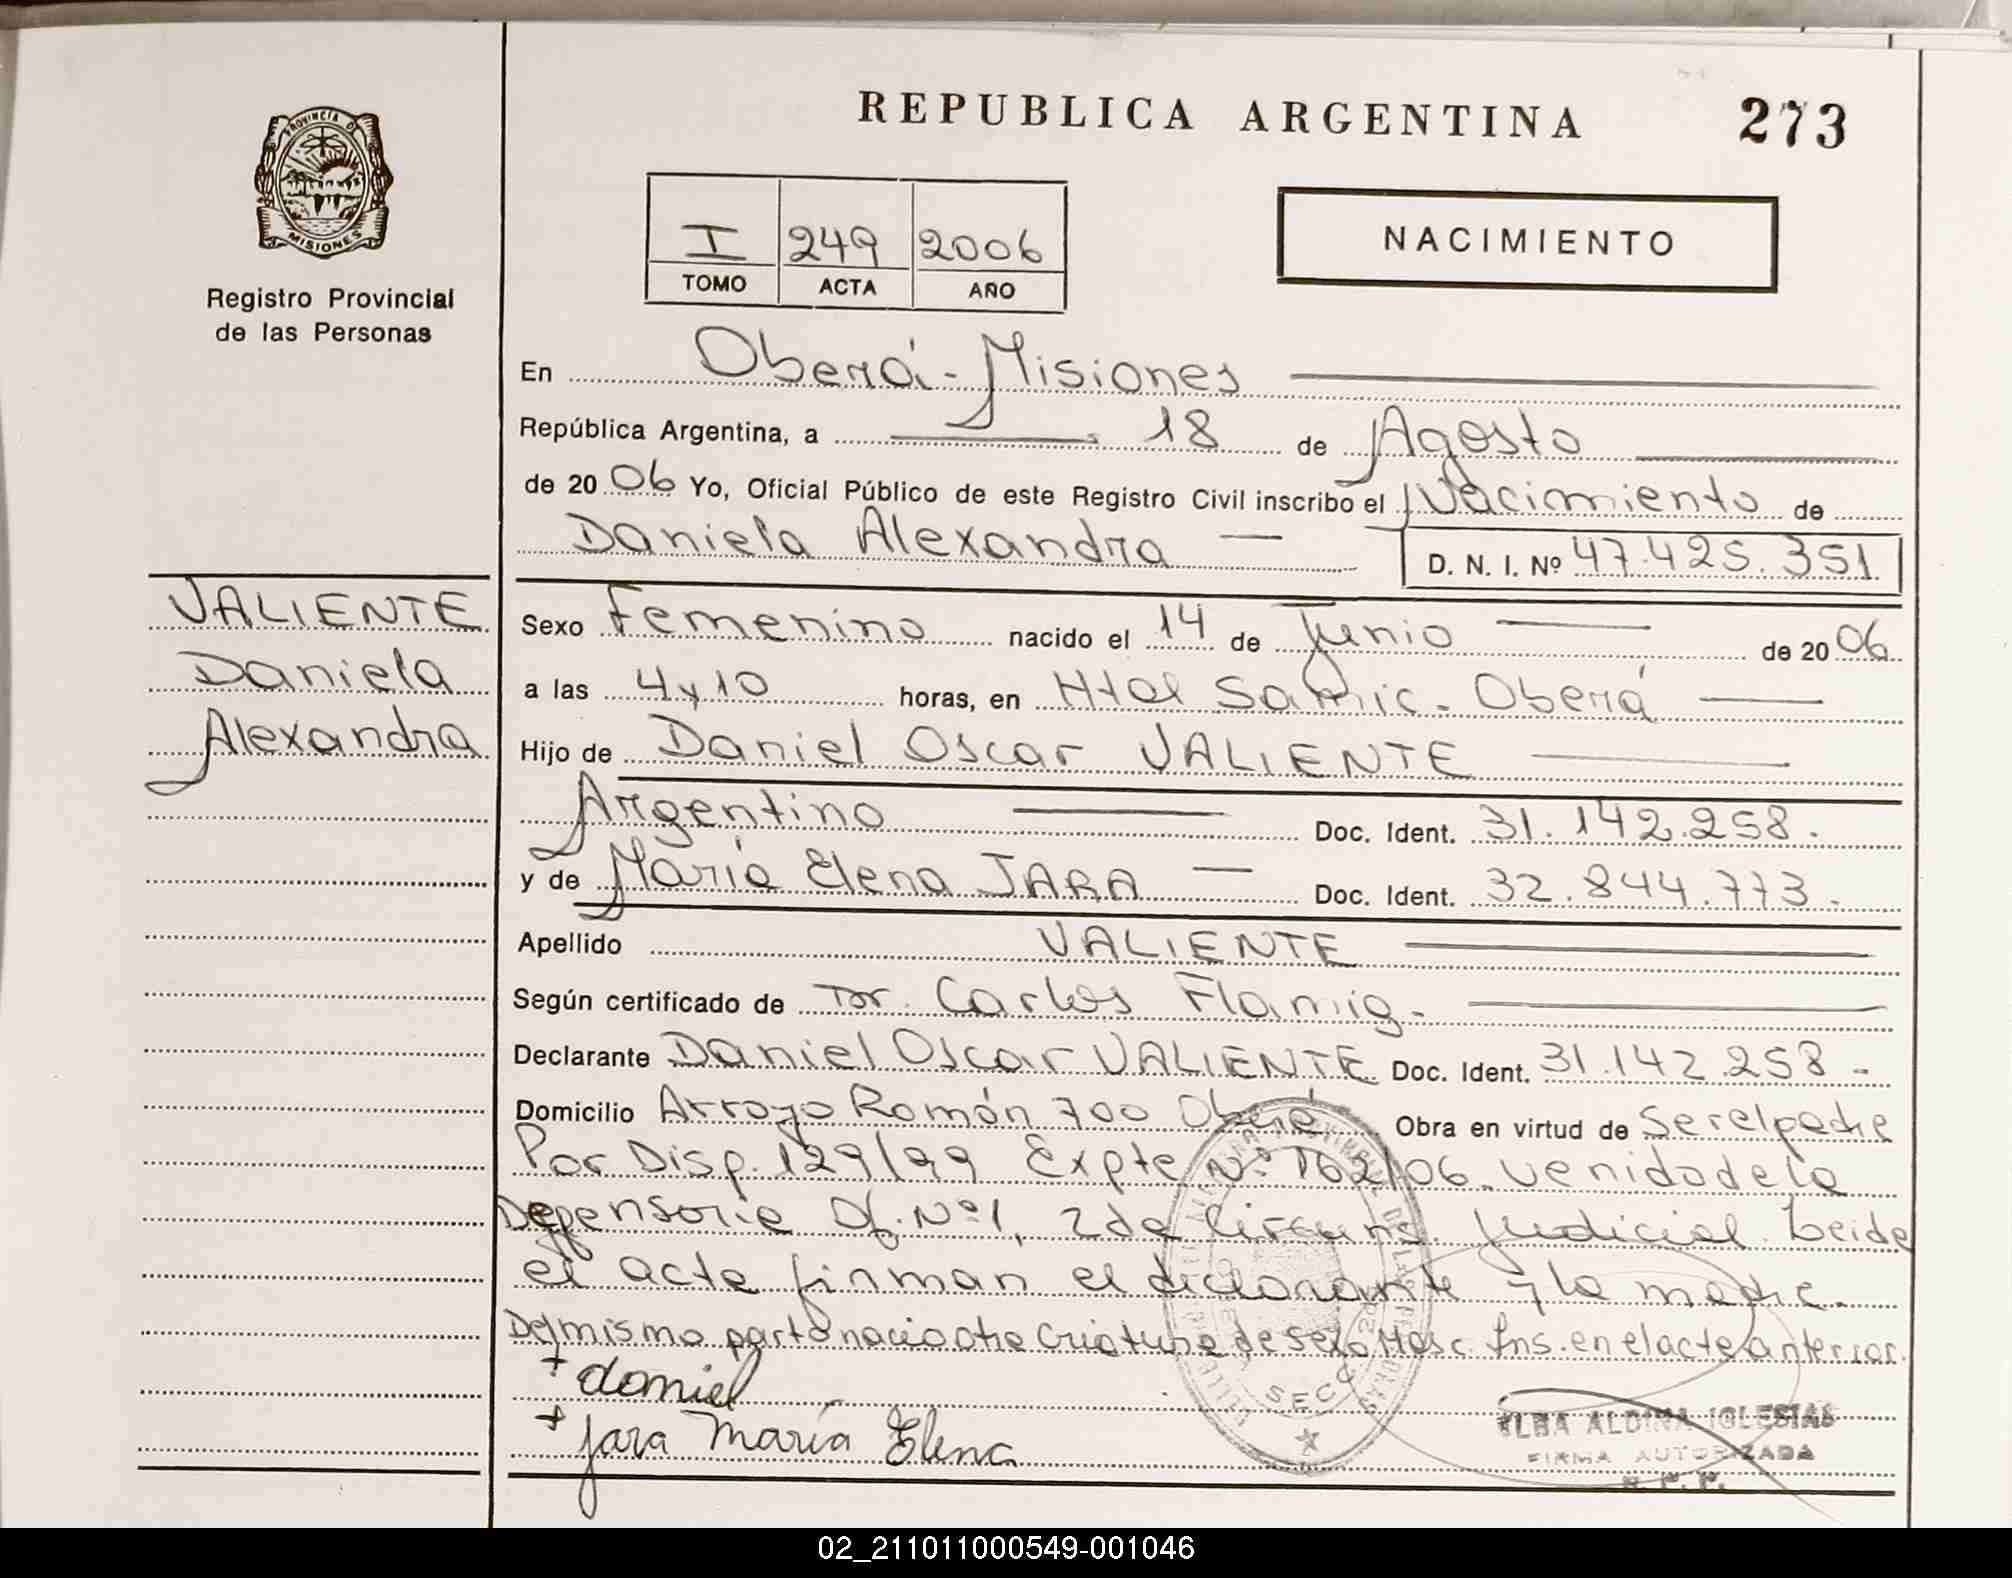 REPUBLICA ARGENTINA
273
PROVINCIA DE
MISIONES
Registro Provincial
de las Personas
I 249 2006
TOMO ACTA AÑO
NACIMIENTO
En Oberá - Misiones
República Argentina, a 18 de Agosto
de 2006 Yo, Oficial Público de este Registro Civil inscribo el Nacimiento de
Daniela Alexandra
D. N. I. Nº 47.425.351
VALIENTE
Daniela
Alexandra
Sexo Femenino nacido el 14 de Junio de 2006
a las 4 y 10 horas, en Htal Samic - Oberá
Hijo de Daniel Oscar VALIENTE
Argentino Doc. Ident. 31.142.258.
y de María Elena JARA Doc. Ident. 32.844.773.
Apellido VALIENTE
Según certificado de Dr. Carlos Flamig.
Declarante Daniel Oscar VALIENTE Doc. Ident. 31.142.258 -
Domicilio Arroyo Román 700 Oberá Obra en virtud de ser el padre
Por Disp. 129/99 Expte Nº 162/06 venido de la
Defensoria Of. Nº 1, 2da Circuns. Judicial. Leida
el acta firman el declarante y la madre.
Del mismo parto nacio otra criatura de sexo Masc. Ins. en el acta anterior.
+ daniel
+ jara María Elena
SECC
ELBA ALDINA IGLESIAS
FIRMA AUTORIZADA
R. P. P.
02_211011000549-001046